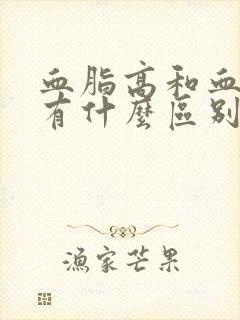 血脂高和血
有什麼區别
漁家芒果